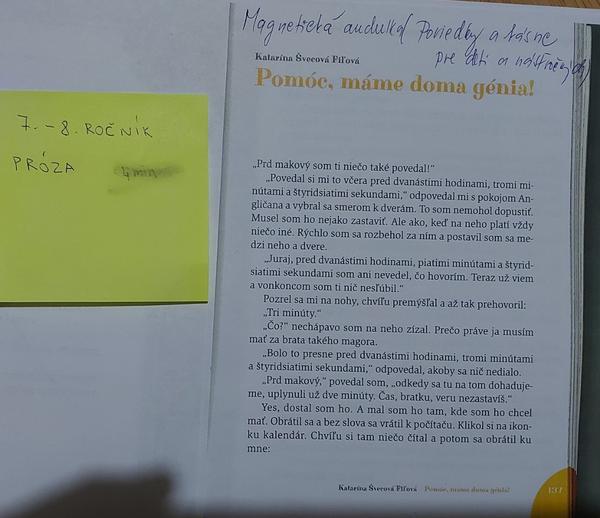 Magnetická Poviedky a básne
pre deti a
Katarína Švecová Fífová
Pomóc, máme doma génia!
7. - 8. ROČNÍK
PRÓZA 4 min
„Prd makový som ti niečo také povedal!“
„Povedal si mi to včera pred dvanástimi hodinami, tromi mi-
nútami a štyridsiatimi sekundami,“ odpovedal mi s pokojom An-
gličana a vybral sa smerom k dverám. To som nemohol dopustiť.
Musel som ho nejako zastaviť. Ale ako, keď na neho platí vždy
niečo iné. Rýchlo som sa rozbehol za ním a postavil som sa me-
dzi neho a dvere.
„Juraj, pred dvanástimi hodinami, piatimi minútami a štyrid-
siatimi sekundami som ani nevedel, čo hovorím. Teraz už viem
a vonkoncom som ti nič nesľúbil.“
Pozrel sa mi na nohy, chvíľu premýšľal a až tak prehovoril:
„Tri minúty.“
„Čo?“ nechápavo som na neho zízal. Prečo práve ja musím
mať za brata takého magora.
„Bolo to presne pred dvanástimi hodinami, tromi minútami
a štyridsiatimi sekundami,“ odpovedal, akoby sa nič nedialo.
„Prd makový,“ povedal som, „odkedy sa tu na tom dohaduje-
me, uplynuli už dve minúty. Čas, bratku, veru nezastavíš.“
Yes, dostal som ho. A mal som ho tam, kde som ho chcel
mať. Obrátil sa a bez slova sa vrátil k počítaču. Klikol si na ikon-
ku kalendár. Chvíľu si tam niečo čítal a potom sa obrátil ku
mne:
Katarína Švecová Fífová Pomóc, máme doma génia! 137